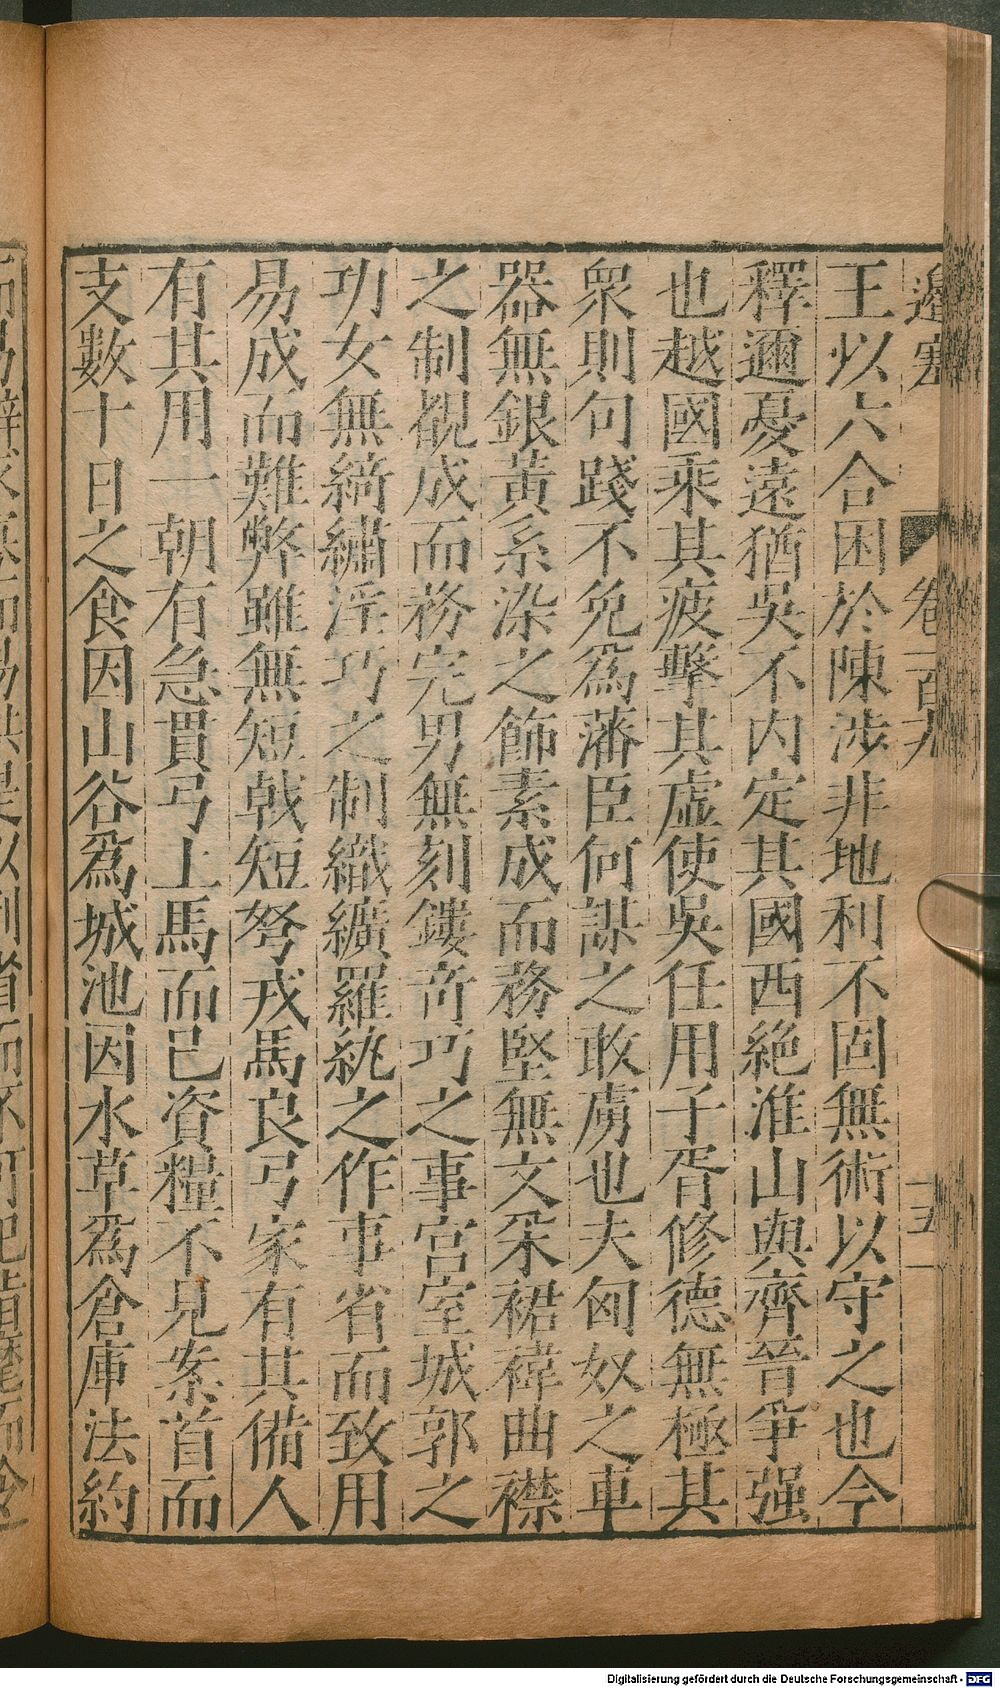 邊塞 卷一百九 十五
王以六合困於陳涉非地利不固無術以守之也今
釋邇憂遠猶吳不内定其國西絶淮山與齊晉爭强
也越國乘其疲擊其虚使吳任用子胥修德無極其
衆則句踐不免爲藩臣何謀之敢虜也夫匈奴之車
器無銀黃系染之飾素成而務堅無文采裙褘曲襟
之制觀成而務完男無刻鏤奇巧之事宮室城郭之
功女無綺繡淫巧之制織纊羅紈之作事省而致用
易成而難弊雖無短戟短弩戎馬良弓家有其備人
有其用一朝有急貫弓上馬而已資糧不見案首而
支數十日之食因山谷爲城池因水草爲倉庫法約
Digitalisierung gefördert durch die Deutsche Forschungsgemeinschaft - DFG